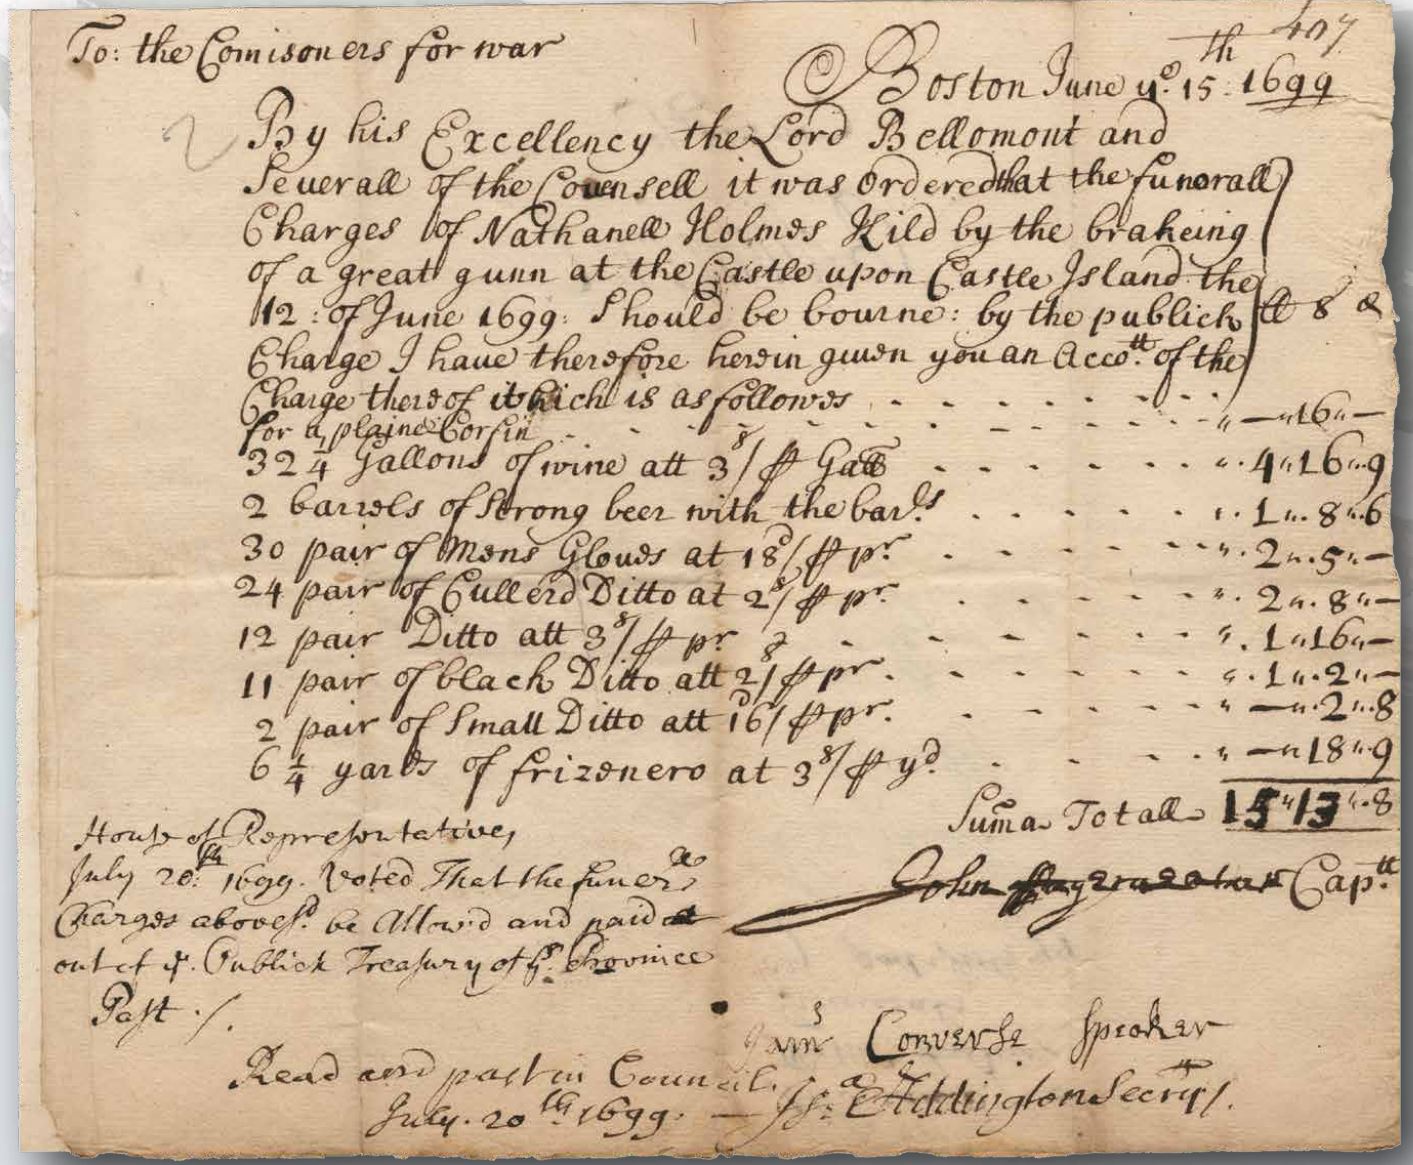 407
To: the Comisoners for war
Boston June ye. 15th: 1699
By his Excellency the Lord Bellomont and
Seuerall of the Counsell it was Ordered that the funorall
Charges of Nathanell Holmes Kild by the brakeing
of a great gunn at the Castle upon Castle Island the
12: of June 1699: Should be bourne: by the publick
Charge I have therefore herein giuen you an Accott. of the
Charge thereof which is as followes
tt s d
for a plaine Corfin " — " 16 " —
32 1/4 Gallons of wine att 3s/ ⅌ Gall ". 4 " 16 " 9
2 barrels of Strong beer with the barls. ". 1 " 8 " 6
30 pair of Mens Gloues at 18d/ ⅌ pr. ". 2 " 5 " —
24 pair of Cullerd Ditto at 2s/ ⅌ pr. ". 2 " 8 " —
12 pair Ditto att 3s/ ⅌ pr ". 1 " 16 " —
11 pair of black Ditto att 2s/ ⅌ pr. ". 1 " 2 " —
2 pair of Small Ditto att 16d/ ⅌ pr. " — " 2 " 8
6 1/4 yards of frizenero at 3s/ ⅌ yd. " — " 18 " 9
Suma Totall 15 " 13 " 8
John Captt
House of Representatives
July 20th: 1699. Voted That the funerall
Charges abovesd. be Allow'd and paid
out of ye. Publick Treasury of ys. Province
Past ./.
Jams Converse Speaker
Read and past in Council.
July. 20th. 1699. — Isa: Addington Secry/.